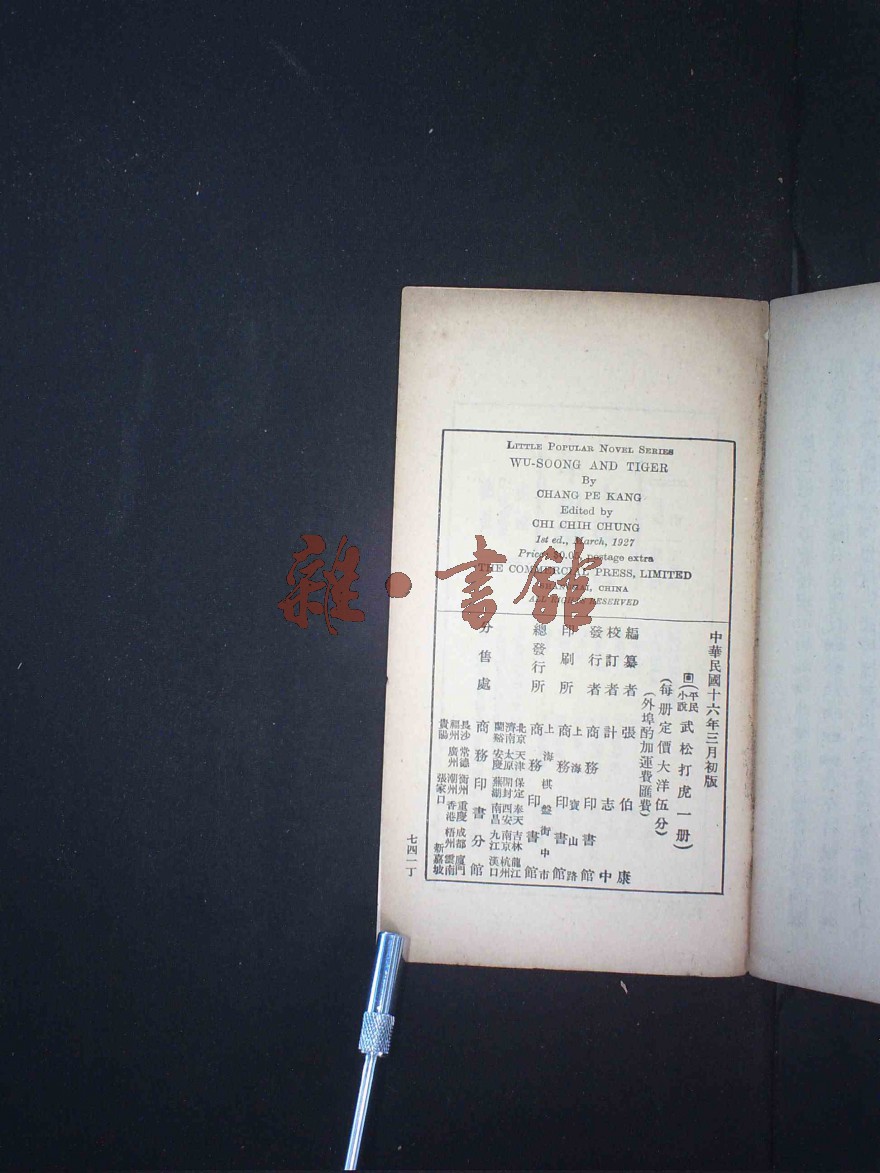 LITTLE POPULAR NOVEL SERIES
WU-SOONG AND TIGER
By
CHANG PE KANG
Edited by
CHI CHIH CHUNG
1st ed., March, 1927
Price, postage extra
THE COMMERCIAL PRESS, LIMITED
CHINA
ALL RIGHTS RESERVED
雜·書館
中華民國十六年三月初版
平民小說
武松打虎一册)
(每册定價大洋伍分)
(外埠酌加運費匯費)
編纂者 張伯康
校訂者 計志中
發行者 商務印書館
印刷所 上海寶山路 商務印書館
總發行所 上海棋盤街中市 商務印書館
分售處 商務印書分館
北京 天津 保定 奉天 吉林 龍江
濟南 太原 開封 西安 南京 杭州
蘭谿 安慶 蕪湖 南昌 九江 漢口
長沙 常德 衡州 重慶 成都 廈門
福州 廣州 潮州 香港 梧州 雲南
貴陽 張家口 新嘉坡
七四一丁